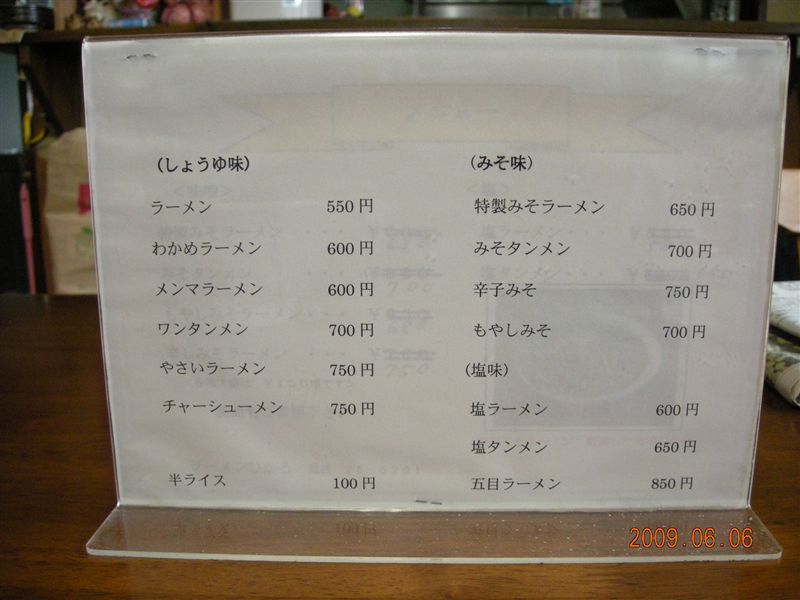 (しょうゆ味)
ラーメン 550円
わかめラーメン 600円
メンマラーメン 600円
ワンタンメン 700円
やさいラーメン 750円
チャーシューメン 750円
半ライス 100円
(みそ味)
特製みそラーメン 650円
みそタンメン 700円
辛子みそ 750円
もやしみそ 700円
(塩味)
塩ラーメン 600円
塩タンメン 650円
五目ラーメン 850円
2009.06.06